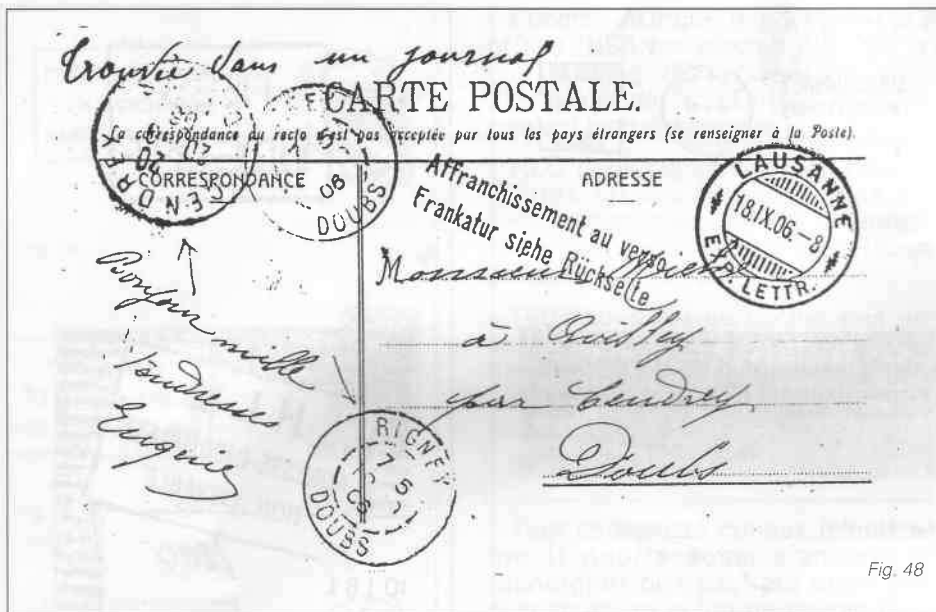 trouvée dans un journal
CARTE POSTALE.
La correspondance au recto n'est pas acceptée par tous les pays étrangers (se renseigner à la Poste).
CORRESPONDANCE
ADRESSE
CENDREY
20
06
DOUBS
Affranchissement au verso
Frankatur siehe Rückseite
LAUSANNE
18.IX.06.-8
EXP. LETTR.
Monsieur
à
par Cendrey
Doubs
Bonjour mille
tendresses
Eugénie
RIGNEY
DOUBS
Fig. 48